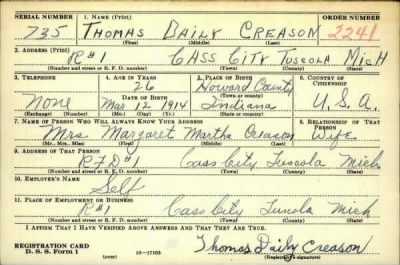 SERIAL NUMBER 1. NAME (Print) ORDER NUMBER
735 THOMAS DAILY CREASON 2241
(First) (Middle) (Last)
2. ADDRESS (Print)
R#1 CASS CITY TUSCOLA MICH
(Number and street or R. F. D. number) (Town) (County) (State)
3. TELEPHONE 4. AGE IN YEARS 5. PLACE OF BIRTH 6. COUNTRY OF CITIZENSHIP
26 Howard County
DATE OF BIRTH
None Mar. 12 1914 Indiana U.S.A.
(Exchange) (Number) (Mo.) (Day) (Yr.) (State or country)
7. NAME OF PERSON WHO WILL ALWAYS KNOW YOUR ADDRESS 8. RELATIONSHIP OF THAT PERSON
Mrs. Margaret Martha Creason Wife
(Mr., Mrs., Miss) (First) (Middle) (Last)
9. ADDRESS OF THAT PERSON
RFD#1 Cass City Tuscola Mich
(Number and street or R. F. D. number) (Town) (County) (State)
10. EMPLOYER'S NAME
Self
11. PLACE OF EMPLOYMENT OR BUSINESS
R#1 Cass City Tuscola Mich
(Number and street or R. F. D. number) (Town) (County) (State)
I AFFIRM THAT I HAVE VERIFIED ABOVE ANSWERS AND THAT THEY ARE TRUE.
REGISTRATION CARD
D. S. S. Form 1 (over) 16—17105 Thomas Daily Creason
(Registrant's signature)